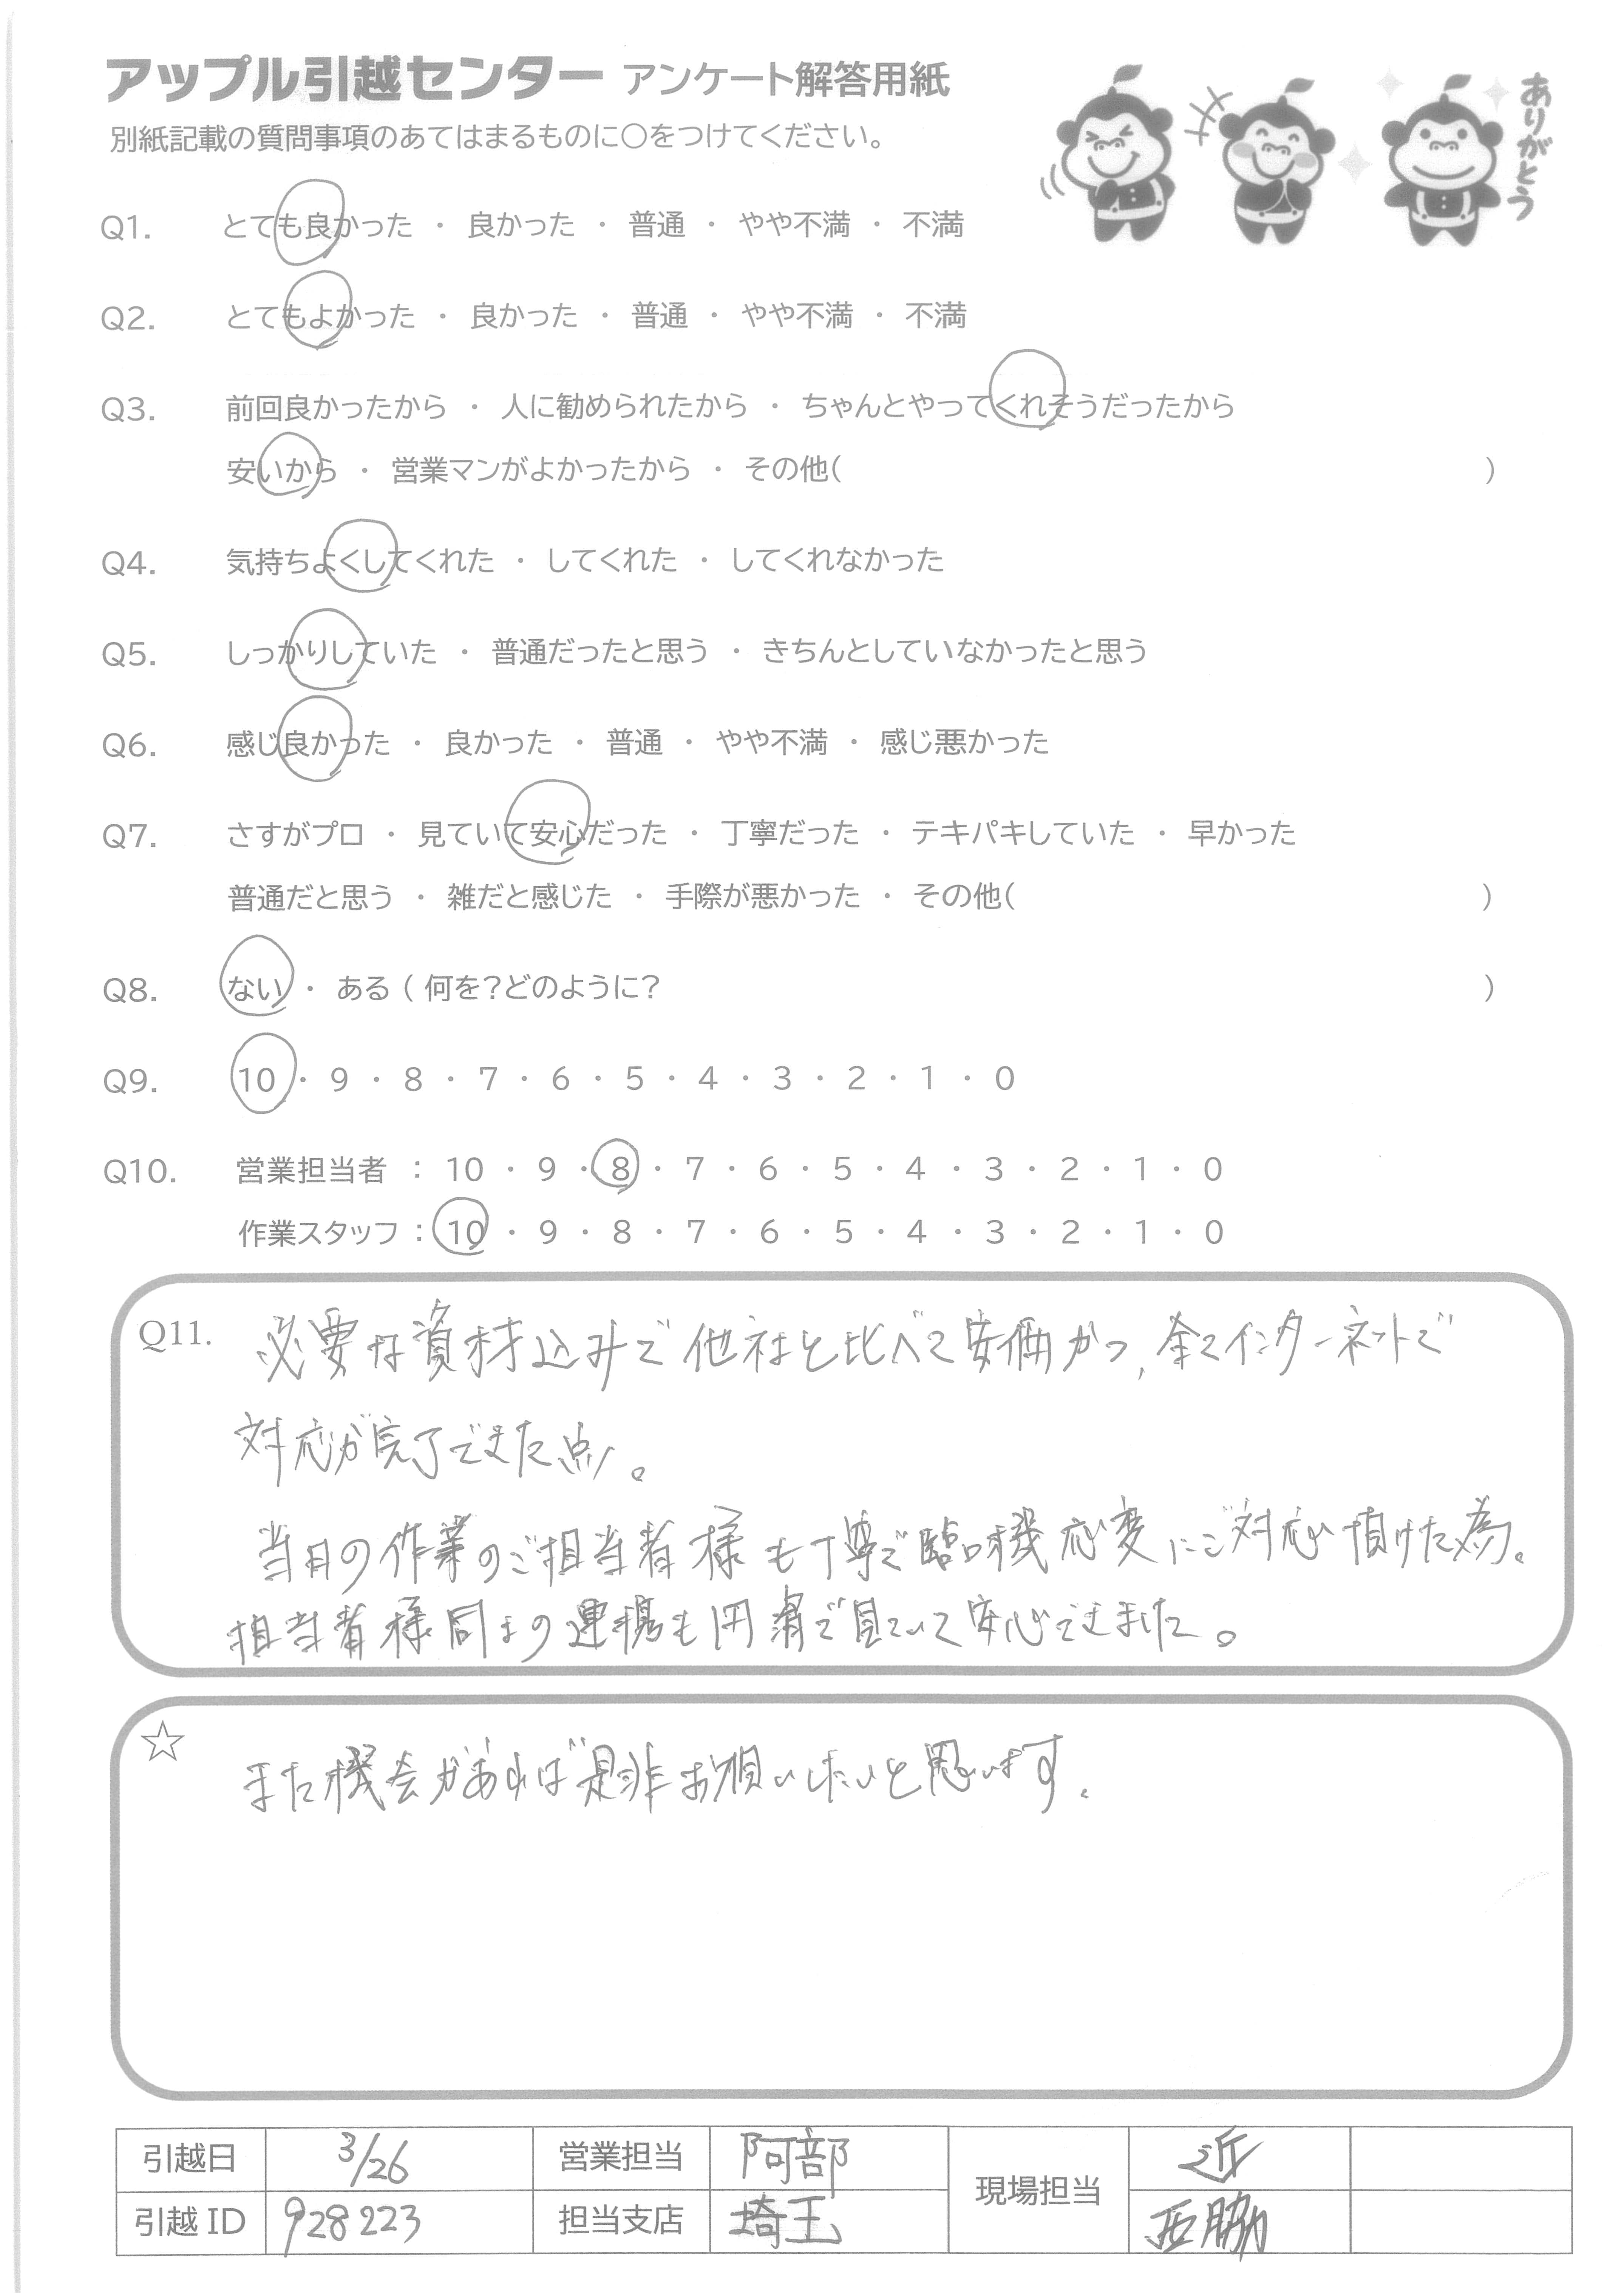 アップル引越センター アンケート解答用紙
ありがとう
別紙記載の質問事項のあてはまるものに○をつけてください。
Q1. とても良かった ・ 良かった ・ 普通 ・ やや不満 ・ 不満
Q2. とてもよかった ・ 良かった ・ 普通 ・ やや不満 ・ 不満
Q3. 前回良かったから ・ 人に勧められたから ・ ちゃんとやってくれそうだったから
安いから ・ 営業マンがよかったから ・ その他( )
Q4. 気持ちよくしてくれた ・ してくれた ・ してくれなかった
Q5. しっかりしていた ・ 普通だったと思う ・ きちんとしていなかったと思う
Q6. 感じ良かった ・ 良かった ・ 普通 ・ やや不満 ・ 感じ悪かった
Q7. さすがプロ ・ 見ていて安心だった ・ 丁寧だった ・ テキパキしていた ・ 早かった
普通だと思う ・ 雑だと感じた ・ 手際が悪かった ・ その他( )
Q8. ない ・ ある ( 何を?どのように? )
Q9. 10 ・ 9 ・ 8 ・ 7 ・ 6 ・ 5 ・ 4 ・ 3 ・ 2 ・ 1 ・ 0
Q10. 営業担当者 : 10 ・ 9 ・ 8 ・ 7 ・ 6 ・ 5 ・ 4 ・ 3 ・ 2 ・ 1 ・ 0
作業スタッフ : 10 ・ 9 ・ 8 ・ 7 ・ 6 ・ 5 ・ 4 ・ 3 ・ 2 ・ 1 ・ 0
Q11. 必要な資材込みで他社と比べて安価かつ、全てインターネットで
対応が完了できた点。
当日の作業のご担当者様も丁寧で臨機応変にご対応頂けた為。
担当者様同士の連携も円滑で見ていて安心できました。
☆ また機会があれば是非お願いしたいと思います。
引越日 3/26 営業担当 阿部 現場担当 近
引越ID 928223 担当支店 埼玉 西脇